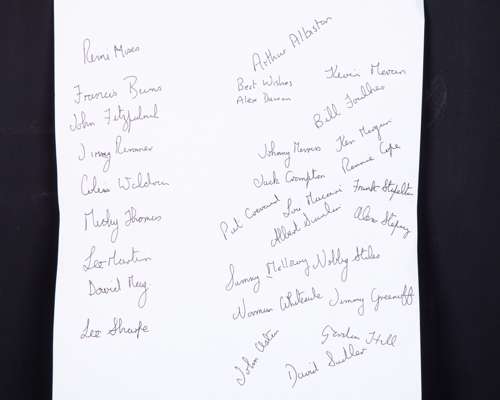 Remi Moses
Francis Burns
John Fitzpatrick
Jimmy Rimmer
Colin Waldron
Micky Thomas
Lee Martin
David May
Lee Sharpe
Arthur Albiston
Best Wishes
Alex Dawson
Kevin Moran
Bill Foulkes
Johnny Morris
Ken Morgan
Jack Crompton
Ronnie Cope
Pat Crerand
Lou Macari
Frank Stapleton
Albert Scanlon
Alex Stepney
Sammy McIlroy
Nobby Stiles
Norman Whiteside
Jimmy Greenhoff
John Aston
Gordon Hill
David Sadler